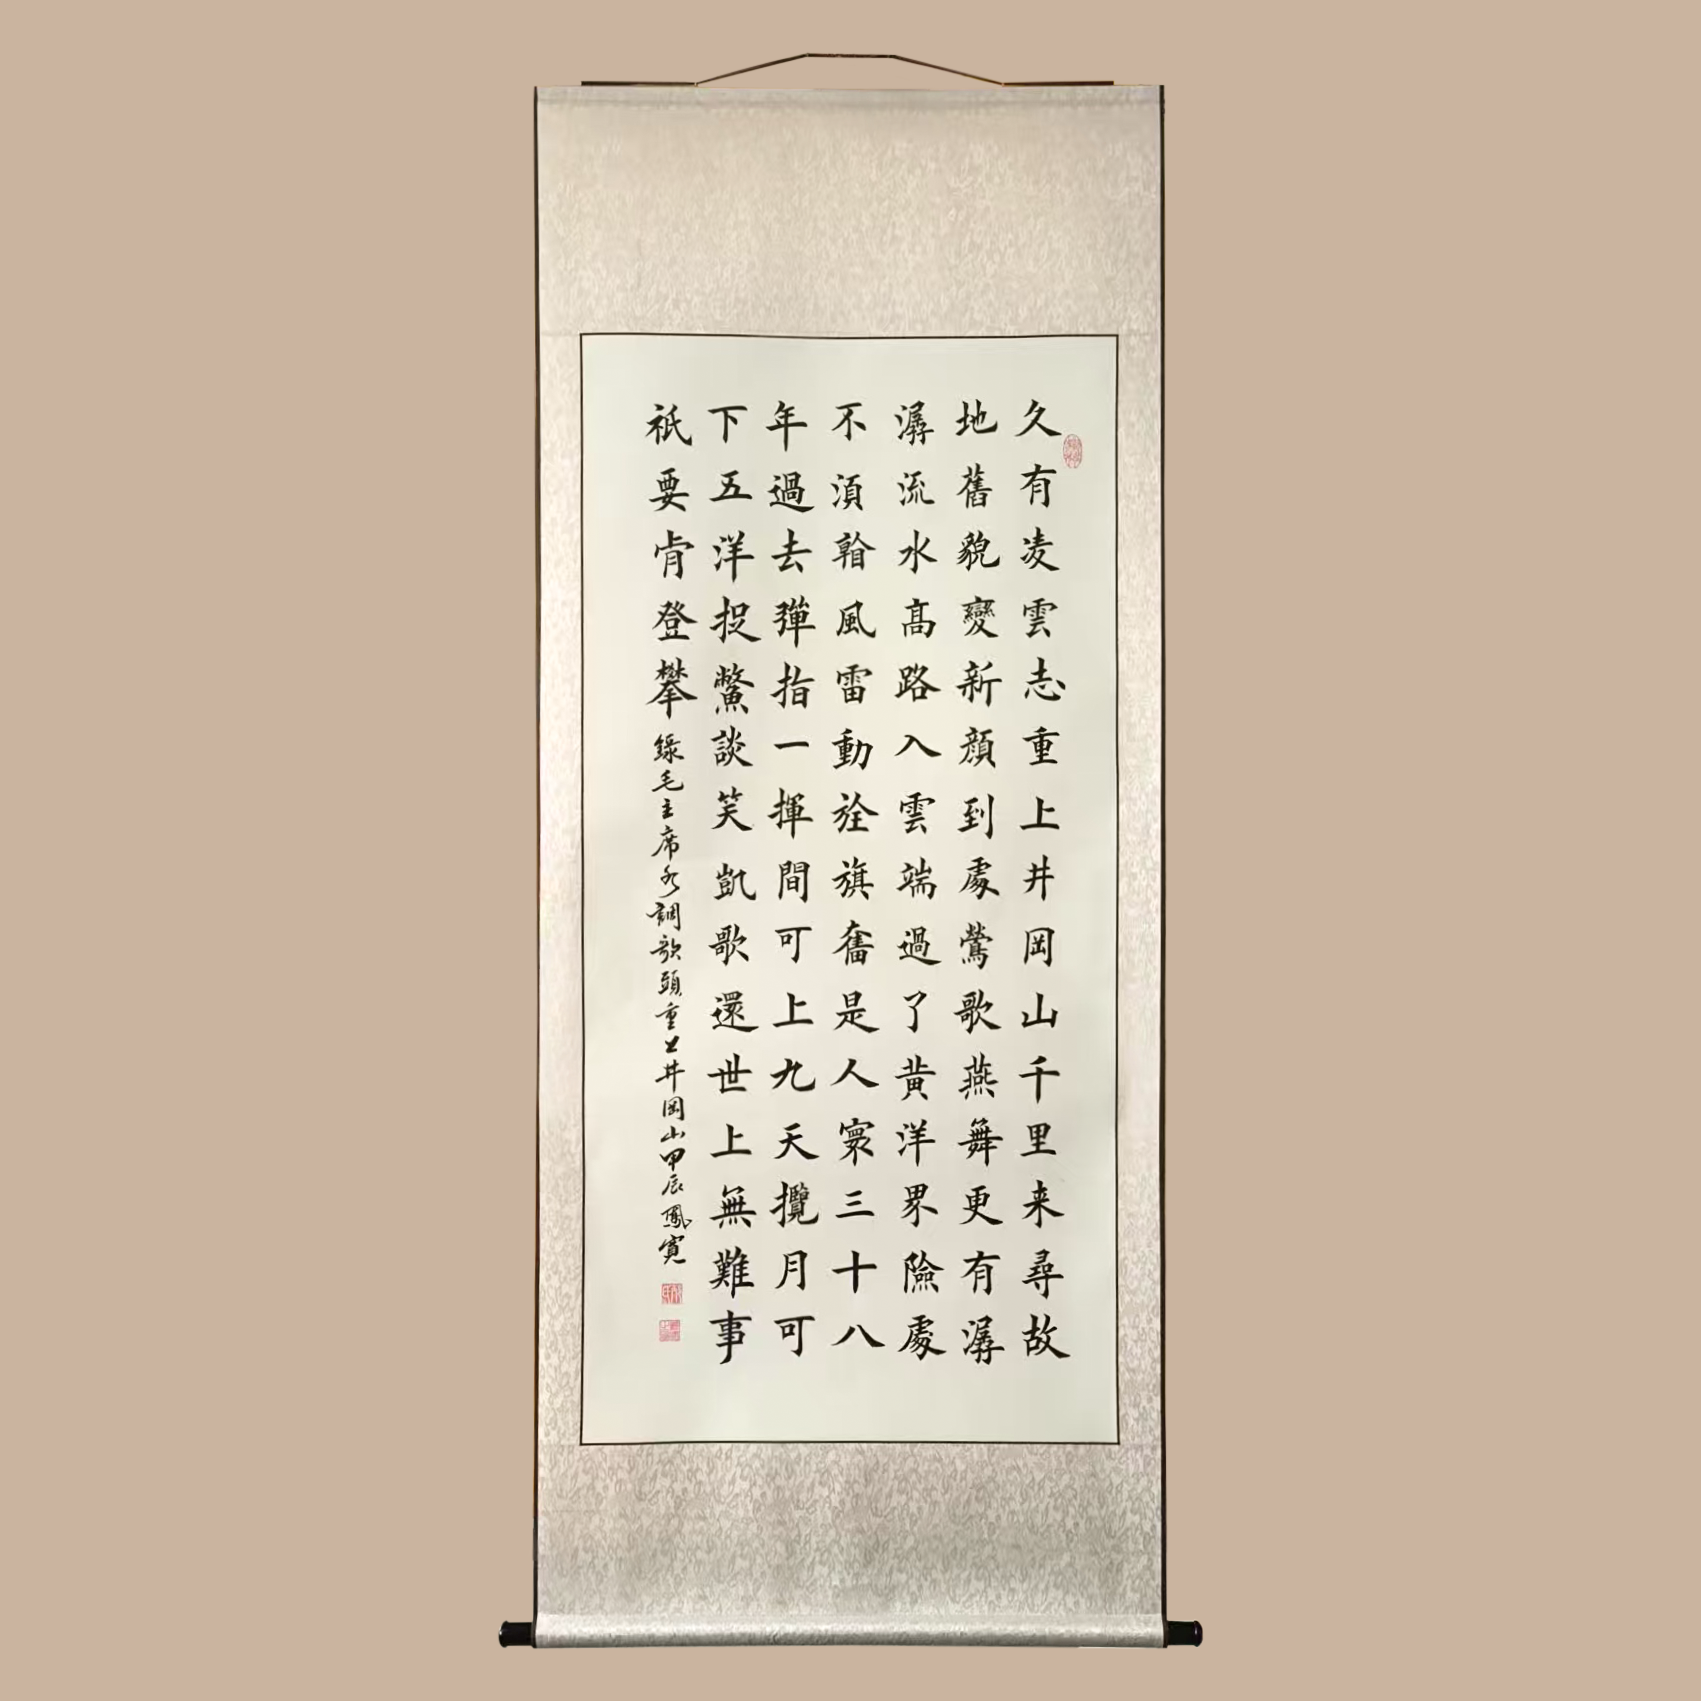 久有凌雲志重上井岡山千里来尋故
地舊貌變新顔到處鶯歌燕舞更有潺
潺流水髙路入雲端過了黄洋界險處
不湏看風雷動旌旗奮是人寰三十八
年過去彈指一揮間可上九天攬月可
下五洋捉鱉談笑凱歌還世上無難事
祇要肯登攀錄毛主席水調歌頭重上井岡山甲辰鳳寬